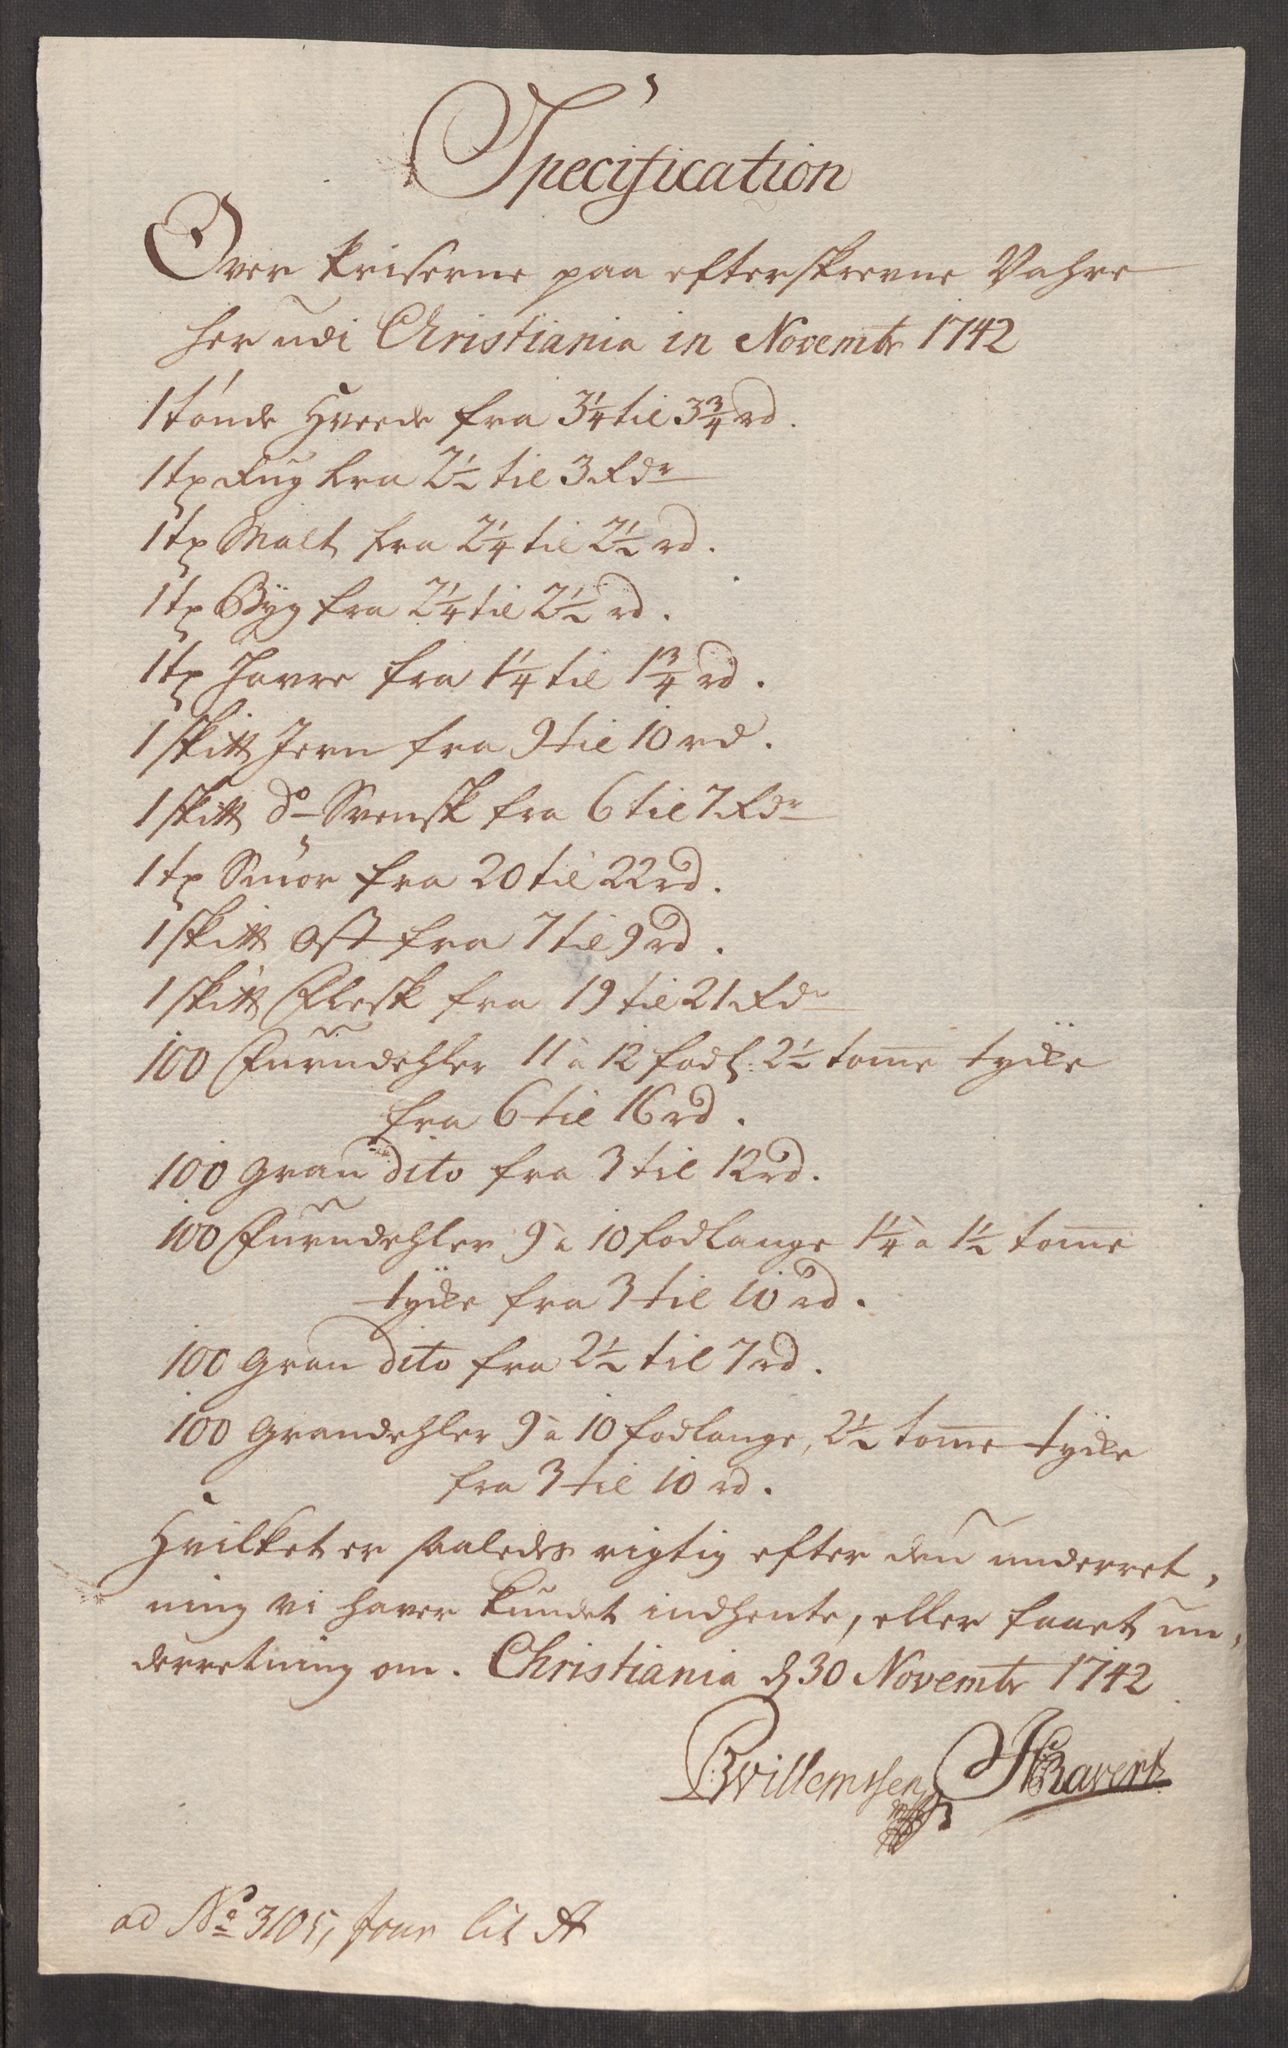 Specification
Over Priserne paa efterskrevne Vahre
her udi Christiania in Novembr 1742
1 tønde Hveede fra 3¼ til 3¾ rd.
1 tø Rug fra 2½ til 3 Rdr
1 tø Malt fra 2¼ til 2½ rd.
1 tø Byg fra 2¼ til 2½ rd.
1 tø Havre fra 1¼ til 1¾ rd.
1 skitt Jern fra 9 til 10 rd.
1 skitt do Svensk fra 6 til 7 Rdr
1 tø Smør fra 20 til 22 rd.
1 skitt Ost fra 7 til 9 rd.
1 skitt Flesk fra 19 til 21 Rdr
100 Furudehler 11 a 12 fodl: 2½ tome tycke
fra 6 til 16 rd.
100 gran dito fra 3 til 12 rd.
100 Furudehler 9 a 10 fodlange 1¼ a 1½ tome
tycke fra 3 til 10 rd.
100 Gran dito fra 2½ til 7 rd.
100 Grandehler 9 a 10 fodlange, 2½ tome tycke
fra 3 til 10 rd.
Hvilket er saaledes rigtig efter den underret,
ning vi haver kundet indhente, eller faaet un,
derretning om. Christiania d 30 Novembr 1742
Willemssen Bavert
ad No 3105, Jour lit A